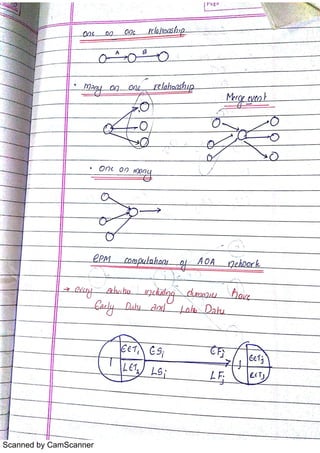 one on one relationship
A B
• Many on one relationship
Merge event
• one on many
CPM computations of AOA network
→ every activities including dummies have
Early Date and Late Date
i EETi LETi ESi LSi EFj LFj j EETj
Scanned by CamScanner